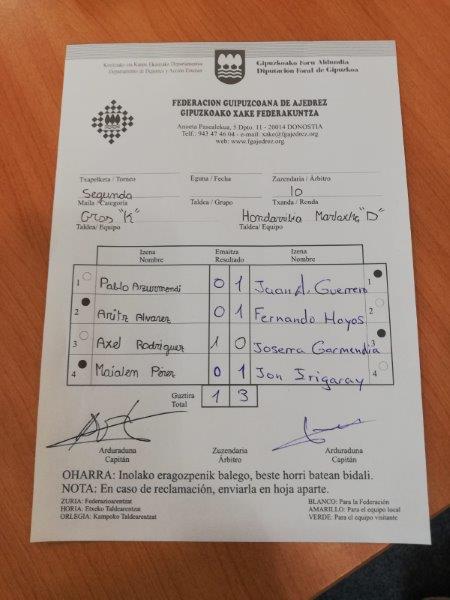 Gipuzkoako Foru Aldundia
Departamento de Deportes y Acción Exterior
Diputación Foral de Gipuzkoa
FEDERACION GUIPUZCOANA DE AJEDREZ
GIPUZKOAKO XAKE FEDERAKUNTZA
Anoeta Pasealekua, 5 Dpto. 11 - 20014 DONOSTIA
Telf.: 943 47 46 04 - e-mail: xake@fgajedrez.org
web: www.fgajedrez.org
Txapelketa / Torneo Eguna / Fecha Zuzendaria / Árbitro
Segunda 10
Maila / Categoria Taldea / Grupo Txanda / Ronda
Gros "K" Hondarribia "D"
Taldea / Equipo Taldea / Equipo
Izena Emaitza Izena
Nombre Resultado Nombre
1 Pablo Arzurmendi 0 1 Juan A. Guerrero 1
2 Aritz Alvarez 0 1 Fernando Hoyos 2
3 Axel Rodriguez 1 0 Joserra Garmendia 3
4 Maialen Pérez 0 1 Jon Irigaray 4
Guztira
Total 1 3
Arduraduna Zuzendaria Arduraduna
Capitán Árbitro Capitán
OHARRA: Inolako eragozpenik balego, beste horri batean bidali.
NOTA: En caso de reclamación, enviarla en hoja aparte.
ZURIA: Federazioarentzat BLANCO: Para la Federación
HORIA: Etxeko Taldearentzat AMARILLO: Para el equipo local
ORLEGIA: Kanpoko Taldearentzat VERDE: Para el equipo visitante